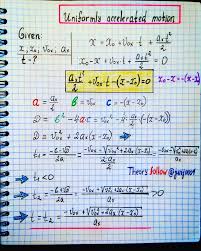 Uniformly accelerated motion
Given:
x, x₀, v₀ₓ, aₓ
t = ?
x = x₀ + v₀ₓ t + aₓt²/2
x₀ - x + v₀ₓ t + aₓt²/2 = 0
aₓt²/2 + v₀ₓ t - (x - x₀) = 0
x₀ - x = -(x - x₀)
a = aₓ/2 b = v₀ₓ c = -(x - x₀)
D = b² - 4ac = v₀ₓ² - 4 · aₓ/2 · (-(x - x₀))
D = v₀ₓ² + 2aₓ(x - x₀)
t₁ = (-b - √D)/2a = (-v₀ₓ - √(v₀ₓ² + 2aₓ(x - x₀)))/aₓ
t₁ < 0
Theory follow
t₂ = (-b + √D)/2a = (-v₀ₓ + √(v₀ₓ² + 2aₓ(x - x₀)))/aₓ > 0
t = t₂ = (-v₀ₓ + √(v₀ₓ² + 2aₓ(x - x₀)))/aₓ